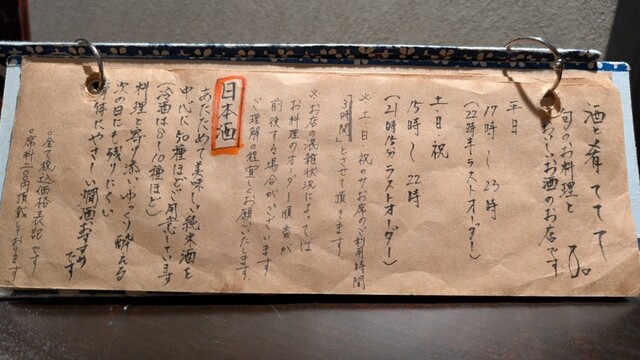 酒と肴 ててて
旬のお料理と
おいしいお酒のお店です
平日
17時〜23時
(22時半ラストオーダー)
土日祝
15時〜22時
(21時15分ラストオーダー)
※土日祝のみお席のご利用時間
「3時間」とさせて頂きます
※お店の混雑状況によっては
お料理のオーダー順番が
前後する場合がございます
ご理解の程宜しくお願いいたします。
日本酒
あたためて美味しい純米酒を
中心に50種ほどご用意しています
(冷酒は8〜10種ほど)
料理に寄り添いゆっくり酔える
次の日にも残りにくい
身体にやさしい燗酒おすすめ
です
○全て税込価格表記です
○席料 頂戴しております